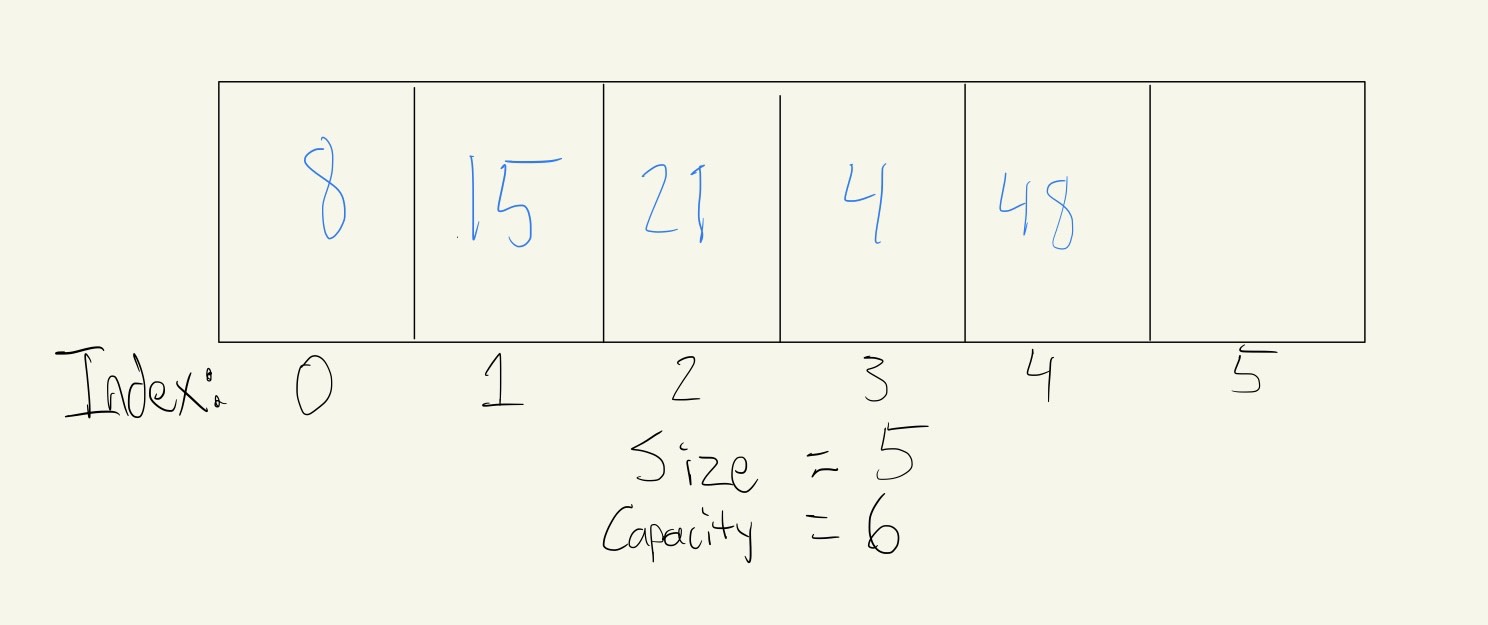 8 15 21 4 48
Index: 0 1 2 3 4 5
Size = 5
Capacity = 6